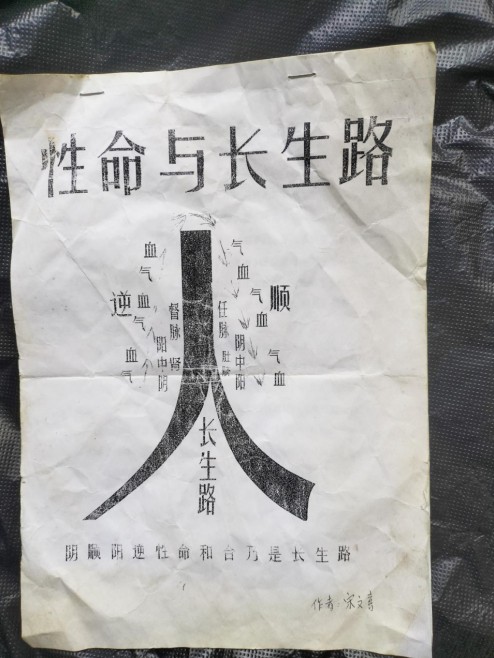 性命与长生路
血气血气血气
逆
督脉 肾
阳中阴
任脉
阴中阳
气血气血气血
顺
长生路
阴顺阳逆性命和台乃是长生路
作者：宋文